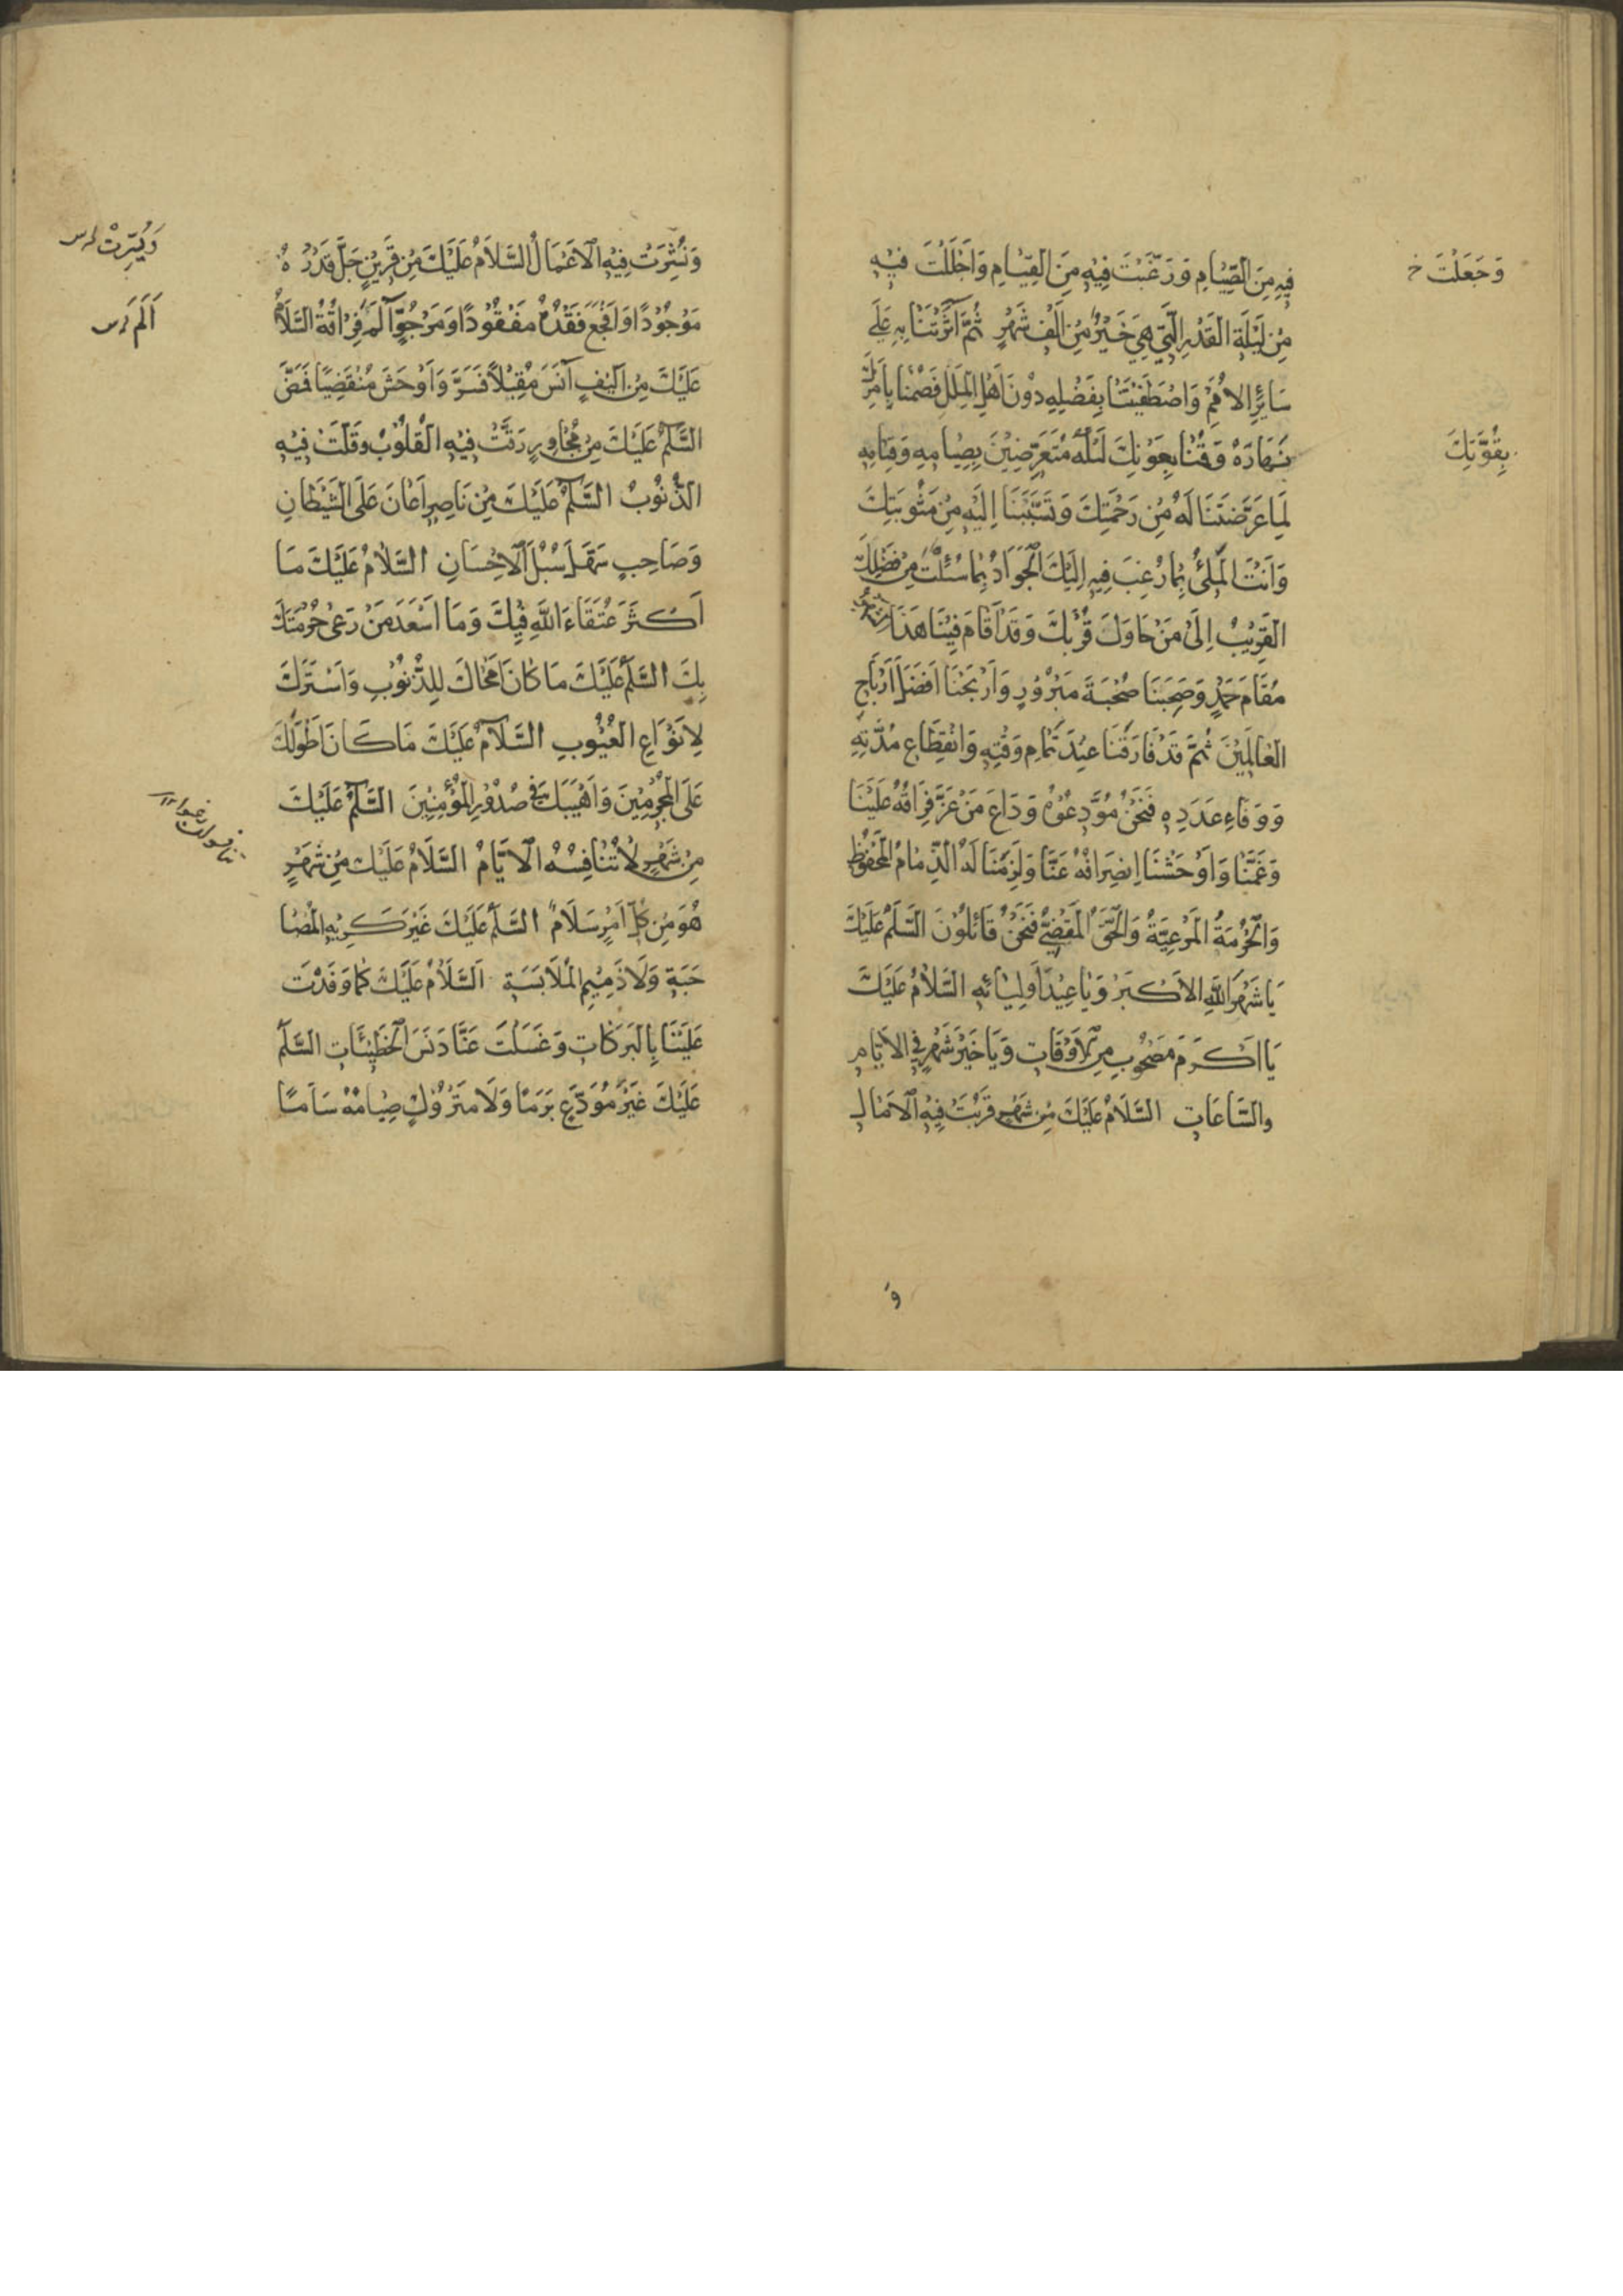 فِيهِ مِنَ الصِّيَامِ وَرَغَّبْتَ فِيهِ مِنَ الْقِيَامِ وَاَجْلَلْتَ فِيهِ
وَجَعَلْتَ خ
مِنْ لَيْلَةِ الْقَدْرِ الَّتِي هِيَ خَيْرٌ مِنْ اَلْفِ شَهْرٍ ثُمَّ آثَرْتَنَا بِهِ عَلَى
سَائِرِ الْاُمَمِ وَاصْطَفَيْتَنَا بِفَضْلِهِ دُونَ اَهْلِ الْمِلَلِ فَصُمْنَا بِاَمْرِكَ
نَهَارَهُ وَقُمْنَا بِعَوْنِكَ لَيْلَهُ مُتَعَرِّضِينَ بِصِيَامِهِ وَقِيَامِهِ
بِقُوَّتِكَ
لِمَا عَرَّضْتَنَا لَهُ مِنْ رَحْمَتِكَ وَتَسَبَّبْنَا اِلَيْهِ مِنْ مَثُوبَتِكَ
وَاَنْتَ الْمَلِئُ بِمَا رُغِبَ فِيهِ اِلَيْكَ الْجَوَادُ بِمَا سُئِلْتَ مِنْ فَضْلِكَ
الْقَرِيبُ اِلَى مَنْ حَاوَلَ قُرْبَكَ وَقَدْ اَقَامَ فِينَا هَذَا
مُقَامَ حَمْدٍ وَصَحِبَنَا صُحْبَةَ مَبْرُورٍ وَاَرْبَحَنَا اَفْضَلَ اَرْبَاحِ
الْعَالَمِينَ ثُمَّ قَدْ فَارَقَنَا عِنْدَ تَمَامِ وَقْتِهِ وَانْقِطَاعِ مُدَّتِهِ
وَوَفَاءِ عَدَدِهِ فَنَحْنُ مُوَدِّعُوهُ وَدَاعَ مَنْ عَزَّ فِرَاقُهُ عَلَيْنَا
وَغَمَّنَا وَاَوْحَشَنَا اِنْصِرَافُهُ عَنَّا وَلَزِمَنَا لَهُ الذِّمَامُ الْمَحْفُوظُ
وَالْحُرْمَةُ الْمَرْعِيَّةُ وَالْحَقُّ الْمَقْضِيُّ فَنَحْنُ قَائِلُونَ السَّلَمُ عَلَيْكَ
يَا شَهْرَ اللّٰهِ الْاَكْبَرَ وَيَا عِيدَ اَوْلِيَائِهِ السَّلَامُ عَلَيْكَ
يَا اَكْرَمَ مَصْحُوبٍ مِنَ الْاَوْقَاتِ وَيَا خَيْرَ شَهْرٍ فِي الْاَيَّامِ
وَالسَّاعَاتِ السَّلَامُ عَلَيْكَ مِنْ شَهْرٍ قَرُبَتْ فِيهِ الْاٰمَالُ
وَ
وَنُشِرَتْ فِيهِ الْاَعْمَالُ السَّلَامُ عَلَيْكَ مِنْ قَرِينٍ جَلَّ قَدْرُهُ
وَيُسِّرَتْ س
مَوْجُودًا وَاَفْجَعَ فَقْدُهُ مَفْقُودًا وَمَرْجُوٍّ آلَمَ فِرَاقُهُ السَّلَامُ
اَلَمَ س
عَلَيْكَ مِنْ اَلِيفٍ آنَسَ مُقْبِلًا فَسَرَّ وَاَوْحَشَ مُنْقَضِيًا فَمَضَّ
السَّلَمُ عَلَيْكَ مِنْ مُجَاوِرٍ رَقَّتْ فِيهِ الْقُلُوبُ وَقَلَّتْ فِيهِ
الذُّنُوبُ السَّلَمُ عَلَيْكَ مِنْ نَاصِرٍ اَعَانَ عَلَى الشَّيْطَانِ
وَصَاحِبٍ سَهَّلَ سُبُلَ الْاِحْسَانِ السَّلَامُ عَلَيْكَ مَا
اَكْثَرَ عُتَقَاءَ اللّٰهِ فِيكَ وَمَا اَسْعَدَ مَنْ رَعٰى حُرْمَتَكَ
بِكَ السَّلَمُ عَلَيْكَ مَا كَانَ اَمْحَاكَ لِلذُّنُوبِ وَاَسْتَرَكَ
لِاَنْوَاعِ الْعُيُوبِ السَّلَامُ عَلَيْكَ مَا كَانَ اَطْوَلَكَ
عَلَى الْمُجْرِمِينَ وَاَهْيَبَكَ فِي صُدُورِ الْمُؤْمِنِينَ السَّلَمُ عَلَيْكَ
مِنْ شَهْرٍ لَا تُنَافِسُهُ الْاَيَّامُ السَّلَامُ عَلَيْكَ مِنْ شَهْرٍ
هُوَ مِنْ كُلِّ اَمْرٍ سَلَامٌ السَّلَمُ عَلَيْكَ غَيْرَ كَرِيهِ الْمُصَا
حَبَةِ وَلَا ذَمِيمِ الْمُلَابَسَةِ اَلسَّلَامُ عَلَيْكَ كَمَا وَفَدْتَ
عَلَيْنَا بِالْبَرَكَاتِ وَغَسَلْتَ عَنَّا دَنَسَ الْخَطِيئَاتِ السَّلَمُ
عَلَيْكَ غَيْرَ مُوَدَّعٍ بَرَمًا وَلَا مَتْرُوكٍ صِيَامُهُ سَاَمًا